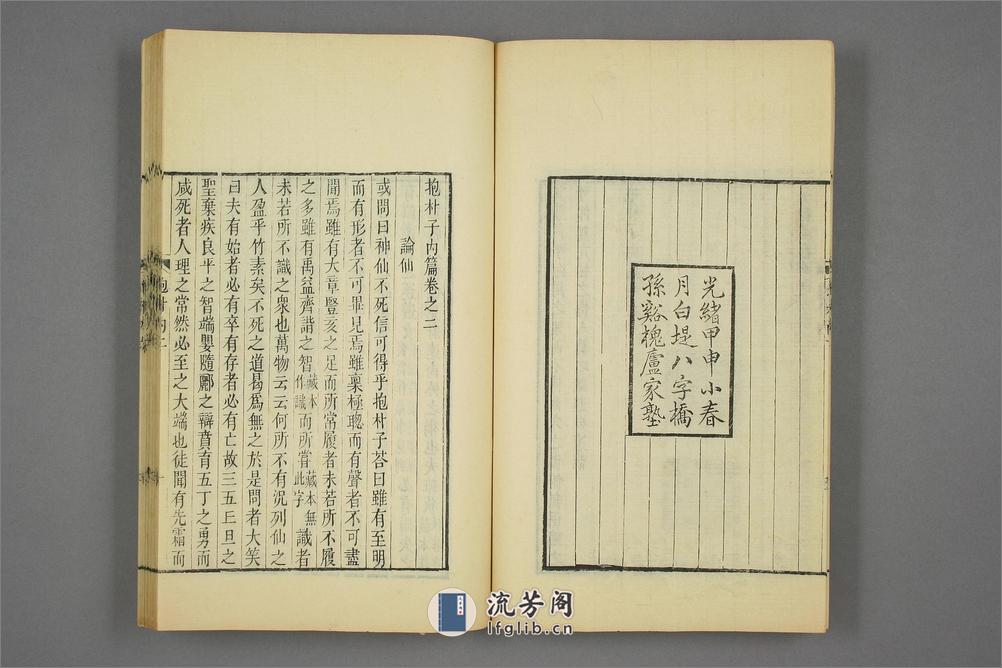 光緒甲申小春
月白堤八字橋
孫谿槐廬家塾
抱朴子內篇卷之二
論仙
或問曰神仙不死信可得乎抱朴子荅曰雖有至明
而有形者不可畢見焉雖稟極聰而有聲者不可盡
聞焉雖有大章豎亥之足而所常履者未若所不履
之多雖有禹益齊諧之智藏本作識而所嘗藏本無此字識者
未若所不識之衆也萬物云云何所不有況列仙之
人盈乎竹素矣不死之道曷爲無之於是問者大笑
曰夫有始者必有卒有存者必有亡故三五丘旦之
聖棄疾良平之智端嬰隨酈之辯賁育五丁之勇而
咸死者人理之常然必至之大端也徒聞有先霜而
抱朴內二
流芳阁
lfglib.cn